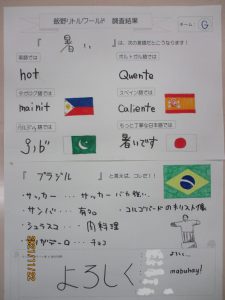 飯野リトルワールド 調査結果
チーム: G
『 暑い 』は、次の言語だとこうなります!
英語では
ポルトガル語では
hot
Quente
タガログ語では
スペイン語では
mainit
Caliente
ウルドゥー語では
もっと丁寧な日本語では
暑いです
『 ブラジル 』と言えば、コレだ!!
・サッカー … サッカーが強い。
・サンバ … 有名
・コルコバードのキリスト像
・シュラスコ … 肉料理
よろしく
よろしく
mabuhay!
2021/11/22